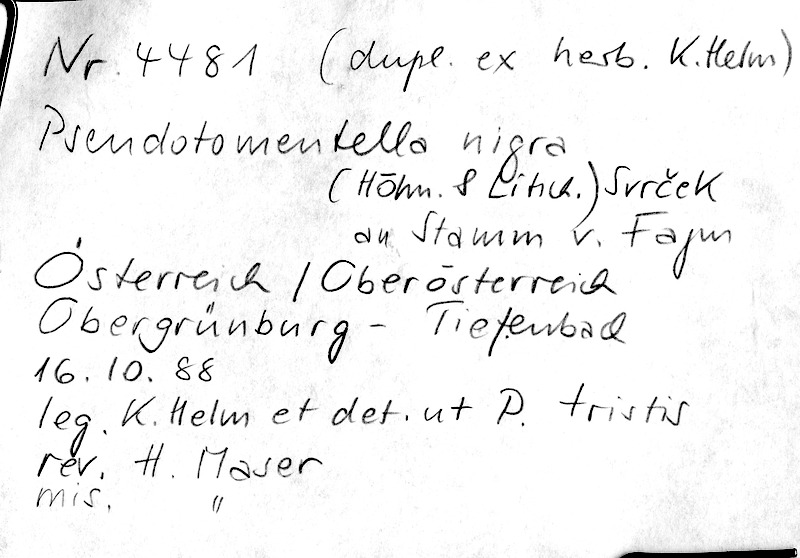 Nr. 4481 (dupl. ex herb. K. Helm)
Pseudotomentella nigra
(Höhn. & Litsch.) Svrček
an Stamm v. Fagus
Österreich / Oberösterreich
Obergrünburg - Tiefenbach
16. 10. 88
leg. K. Helm et det. ut P. tristis
rev. H. Maser
mis. "